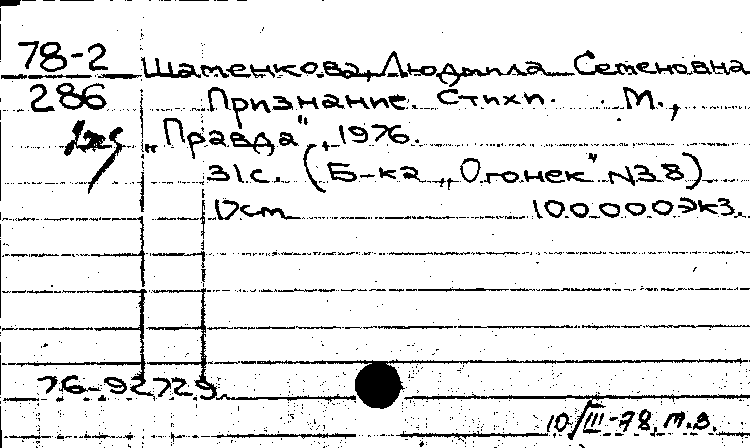 78-2 Шаменкова, Людмила Семеновна
286 Признание. Стихи. М.,
„Правда", 1976.
31с. (Б-ка „Огонек" №38)
100.000экз.
76-92729
10/III-78. т.з.